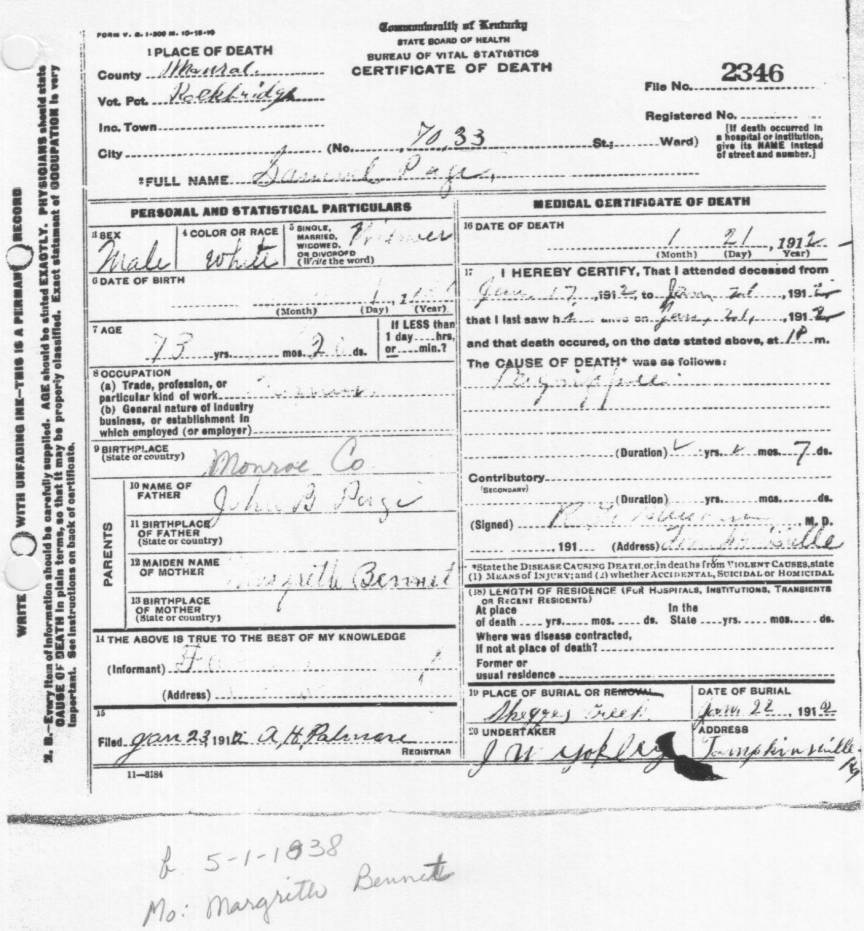 FORM V. S. 1-300 M. 10-15-10
Commonwealth of Kentucky
STATE BOARD OF HEALTH
BUREAU OF VITAL STATISTICS
CERTIFICATE OF DEATH
1 PLACE OF DEATH
County
Vot. Pct. Rockbridge
Inc. Town
City
(No. 70,33 St.; Ward)
File No. 2346
Registered No.
[If death occurred in
a hospital or institution,
give its NAME instead
of street and number.]
2 FULL NAME Samuel Page
PERSONAL AND STATISTICAL PARTICULARS
3 SEX
Male
4 COLOR OR RACE
White
5 SINGLE,
MARRIED,
WIDOWED,
OR DIVORCED
(Write the word)
6 DATE OF BIRTH
1
(Month) (Day) (Year)
7 AGE
73 yrs. mos. 20 ds.
If LESS than
1 day hrs,
or min.?
8 OCCUPATION
(a) Trade, profession, or
particular kind of work
(b) General nature of industry
business, or establishment in
which employed (or employer)
9 BIRTHPLACE
(State or country) Monroe Co
PARENTS
10 NAME OF
FATHER John B Page
11 BIRTHPLACE
OF FATHER
(State or country)
12 MAIDEN NAME
OF MOTHER Margrith Bennet
13 BIRTHPLACE
OF MOTHER
(State or country)
14 THE ABOVE IS TRUE TO THE BEST OF MY KNOWLEDGE
(Informant)
(Address)
15
Filed Jan 23 1912 A. H. Palmore
REGISTRAR
11-3184
MEDICAL CERTIFICATE OF DEATH
16 DATE OF DEATH
1 21, 1912
(Month) (Day) Year)
17 I HEREBY CERTIFY, That I attended deceased from
Jan 17, 1912, to Jan 21, 1912
that I last saw h alive on Jan, 21, 1912
and that death occured, on the date stated above, at m.
The CAUSE OF DEATH* was as follows:
(Duration) yrs. mos. 7 ds.
Contributory
(SECONDARY)
(Duration) yrs. mos. ds.
(Signed) M. D.
191 (Address) Tompkinsville
*State the DISEASE CAUSING DEATH, or, in deaths from VIOLENT CAUSES, state
(1) MEANS OF INJURY; and (2) whether ACCIDENTAL, SUICIDAL or HOMICIDAL
(18) LENGTH OF RESIDENCE (FOR HOSPITALS, INSTITUTIONS, TRANSIENTS
OR RECENT RESIDENTS)
At place
of death yrs. mos. ds.
In the
State yrs. mos. ds.
Where was disease contracted,
If not at place of death?
Former or
usual residence
19 PLACE OF BURIAL OR REMOVAL
Creek
DATE OF BURIAL
Jan 22, 1912
20 UNDERTAKER
J W Yokley
ADDRESS
Tompkinsville
Ky
WRITE WITH UNFADING INK—THIS IS A PERMAN RECORD
N. B.—Every item of information should be carefully supplied. AGE should be stated EXACTLY. PHYSICIANS should state
CAUSE OF DEATH in plain terms, so that it may be properly classified. Exact statement of OCCUPATION is very
important. See instructions on back of certificate.
b 5-1-1838
Mo: Margrith Bennett